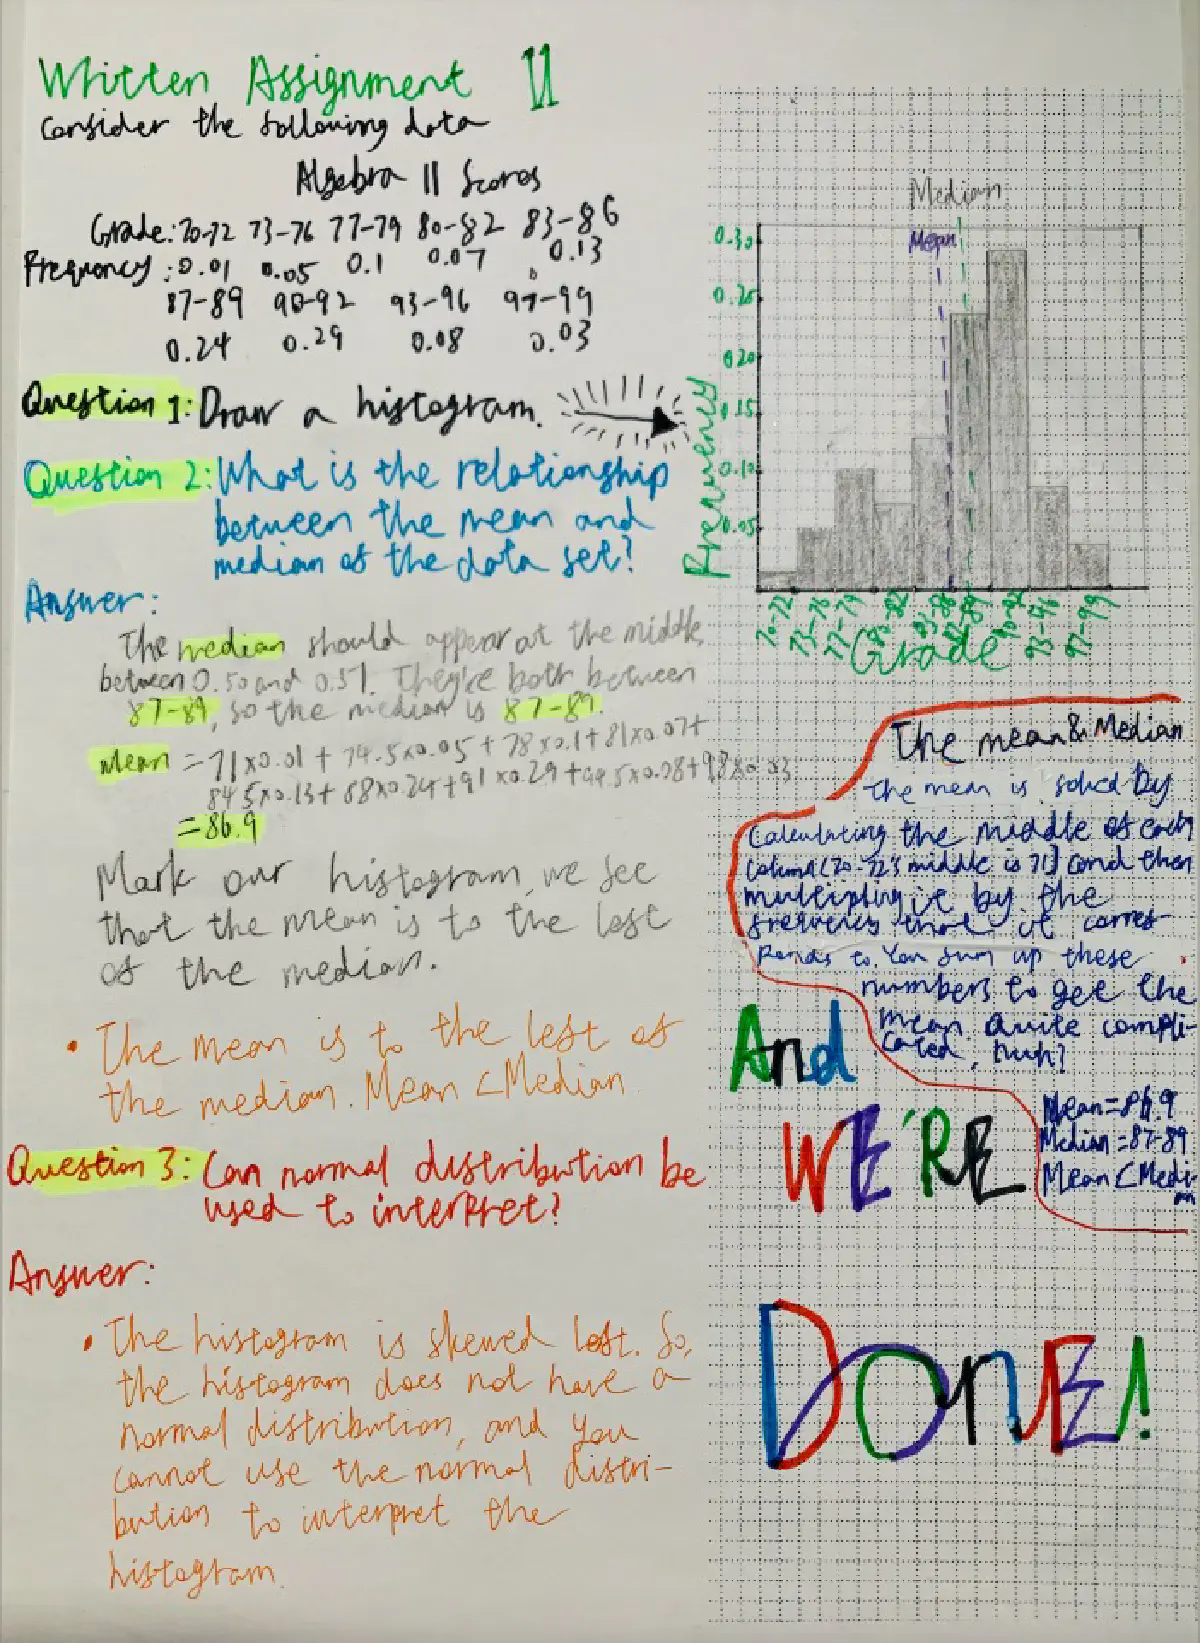 Written Assignment 11
Consider the following data
Algebra II Scores
Grade: 70-72 73-76 77-79 80-82 83-86
Frequency: 0.01 0.05 0.1 0.07 0.13
87-89 90-92 93-96 97-99
0.24 0.29 0.08 0.03
Question 1: Draw a histogram.
Question 2: What is the relationship
between the mean and
median of the data set?
Answer:
The median should appear at the middle,
between 0.50 and 0.51. They're both between
87-89, so the median is 87-89.
Mean = 71x0.01 + 74.5x0.05 + 78x0.1 + 81x0.07 +
84.5x0.13 + 88x0.24 + 91x0.29 + 94.5x0.08 + 98x0.03
= 86.9
Mark our histogram, we see
that the mean is to the left
of the median.
• The mean is to the left of
the median. Mean < Median
Question 3: Can normal distribution be
used to interpret?
Answer:
• The histogram is skewed left. So,
the histogram does not have a
normal distribution, and you
cannot use the normal distri-
bution to interpret the
histogram.
Median
Mean
0.30
0.25
0.20
0.15
0.10
0.05
Frequency
70-72 73-76 77-79 80-82 83-86 87-89 90-92 93-96 97-99
Grade
The mean & Median
The mean is solved by
calculating the middle of each
column (70-72's middle is 71) and then
multipling it by the
frequency that it corres-
ponds to. You sum up these
numbers to get the
mean. Quite compli-
cated, huh?
Mean = 86.9
Median = 87-89
Mean < Medi-
an
And
WE'RE
DONE!